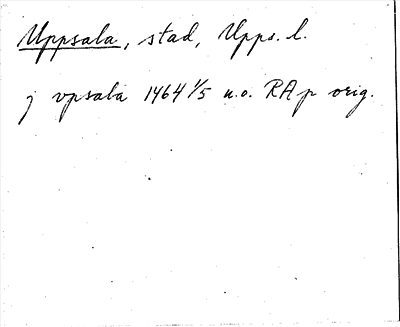 Uppsala, stad, Upps. l.
j vpsala 1464 1/5 u.o. RAp orig.